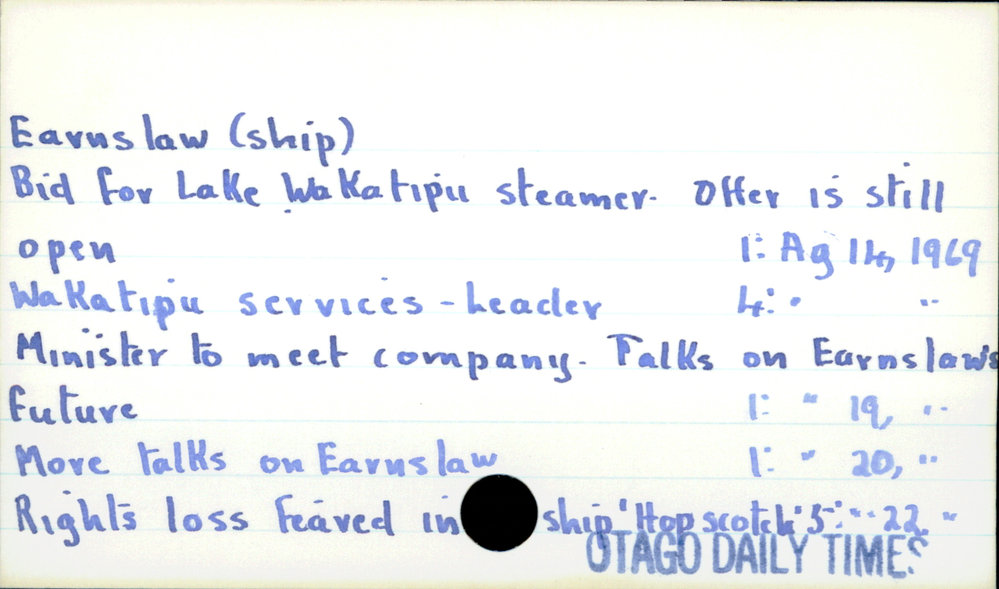 Earnslaw (ship)
Bid for Lake Wakatipu steamer. Offer is still
open 1: Ag 14, 1969
Wakatipu services - Leader 4: " "
Minister to meet company. Talks on Earnslaw's
future 1: " 19, "
More talks on Earnslaw 1: " 20, "
Rights loss feared in ship 'Hop scotch' 5: " 22, "
OTAGO DAILY TIMES